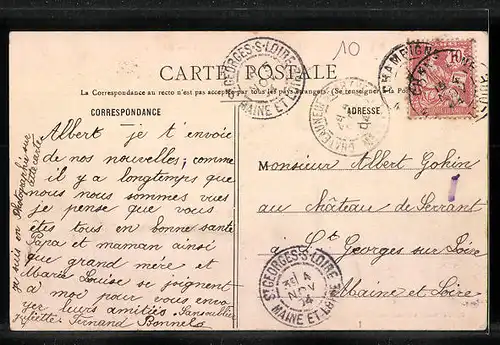 10
CARTE POSTALE
La Correspondance au recto n'est pas acceptée par tous les pays étrangers. (Se renseigner à la Poste)
CORRESPONDANCE
ADRESSE
Albert je t'envoie
de nos nouvelles, comme
il y a longtemps que
nous nous sommes vues
je pense que vous
êtes tous en bonne santé
Papa et maman ainsi
que grand mère et
Marie Louise se joignent
à moi pour vous envo
yer leurs amitiés.
Juliette Fernand Bonnels
je suis en Photographie sur
cette carte
Monsieur Albert Gokin
au château de Serrant
à St Georges sur Loire
Maine et Loire
ST GEORGES-S-LOIRE
MAINE ET LOIRE
ST GEORGES-S-LOIRE
4
NOV
04
MAINE ET LOIRE
CHAMPIGNE
10